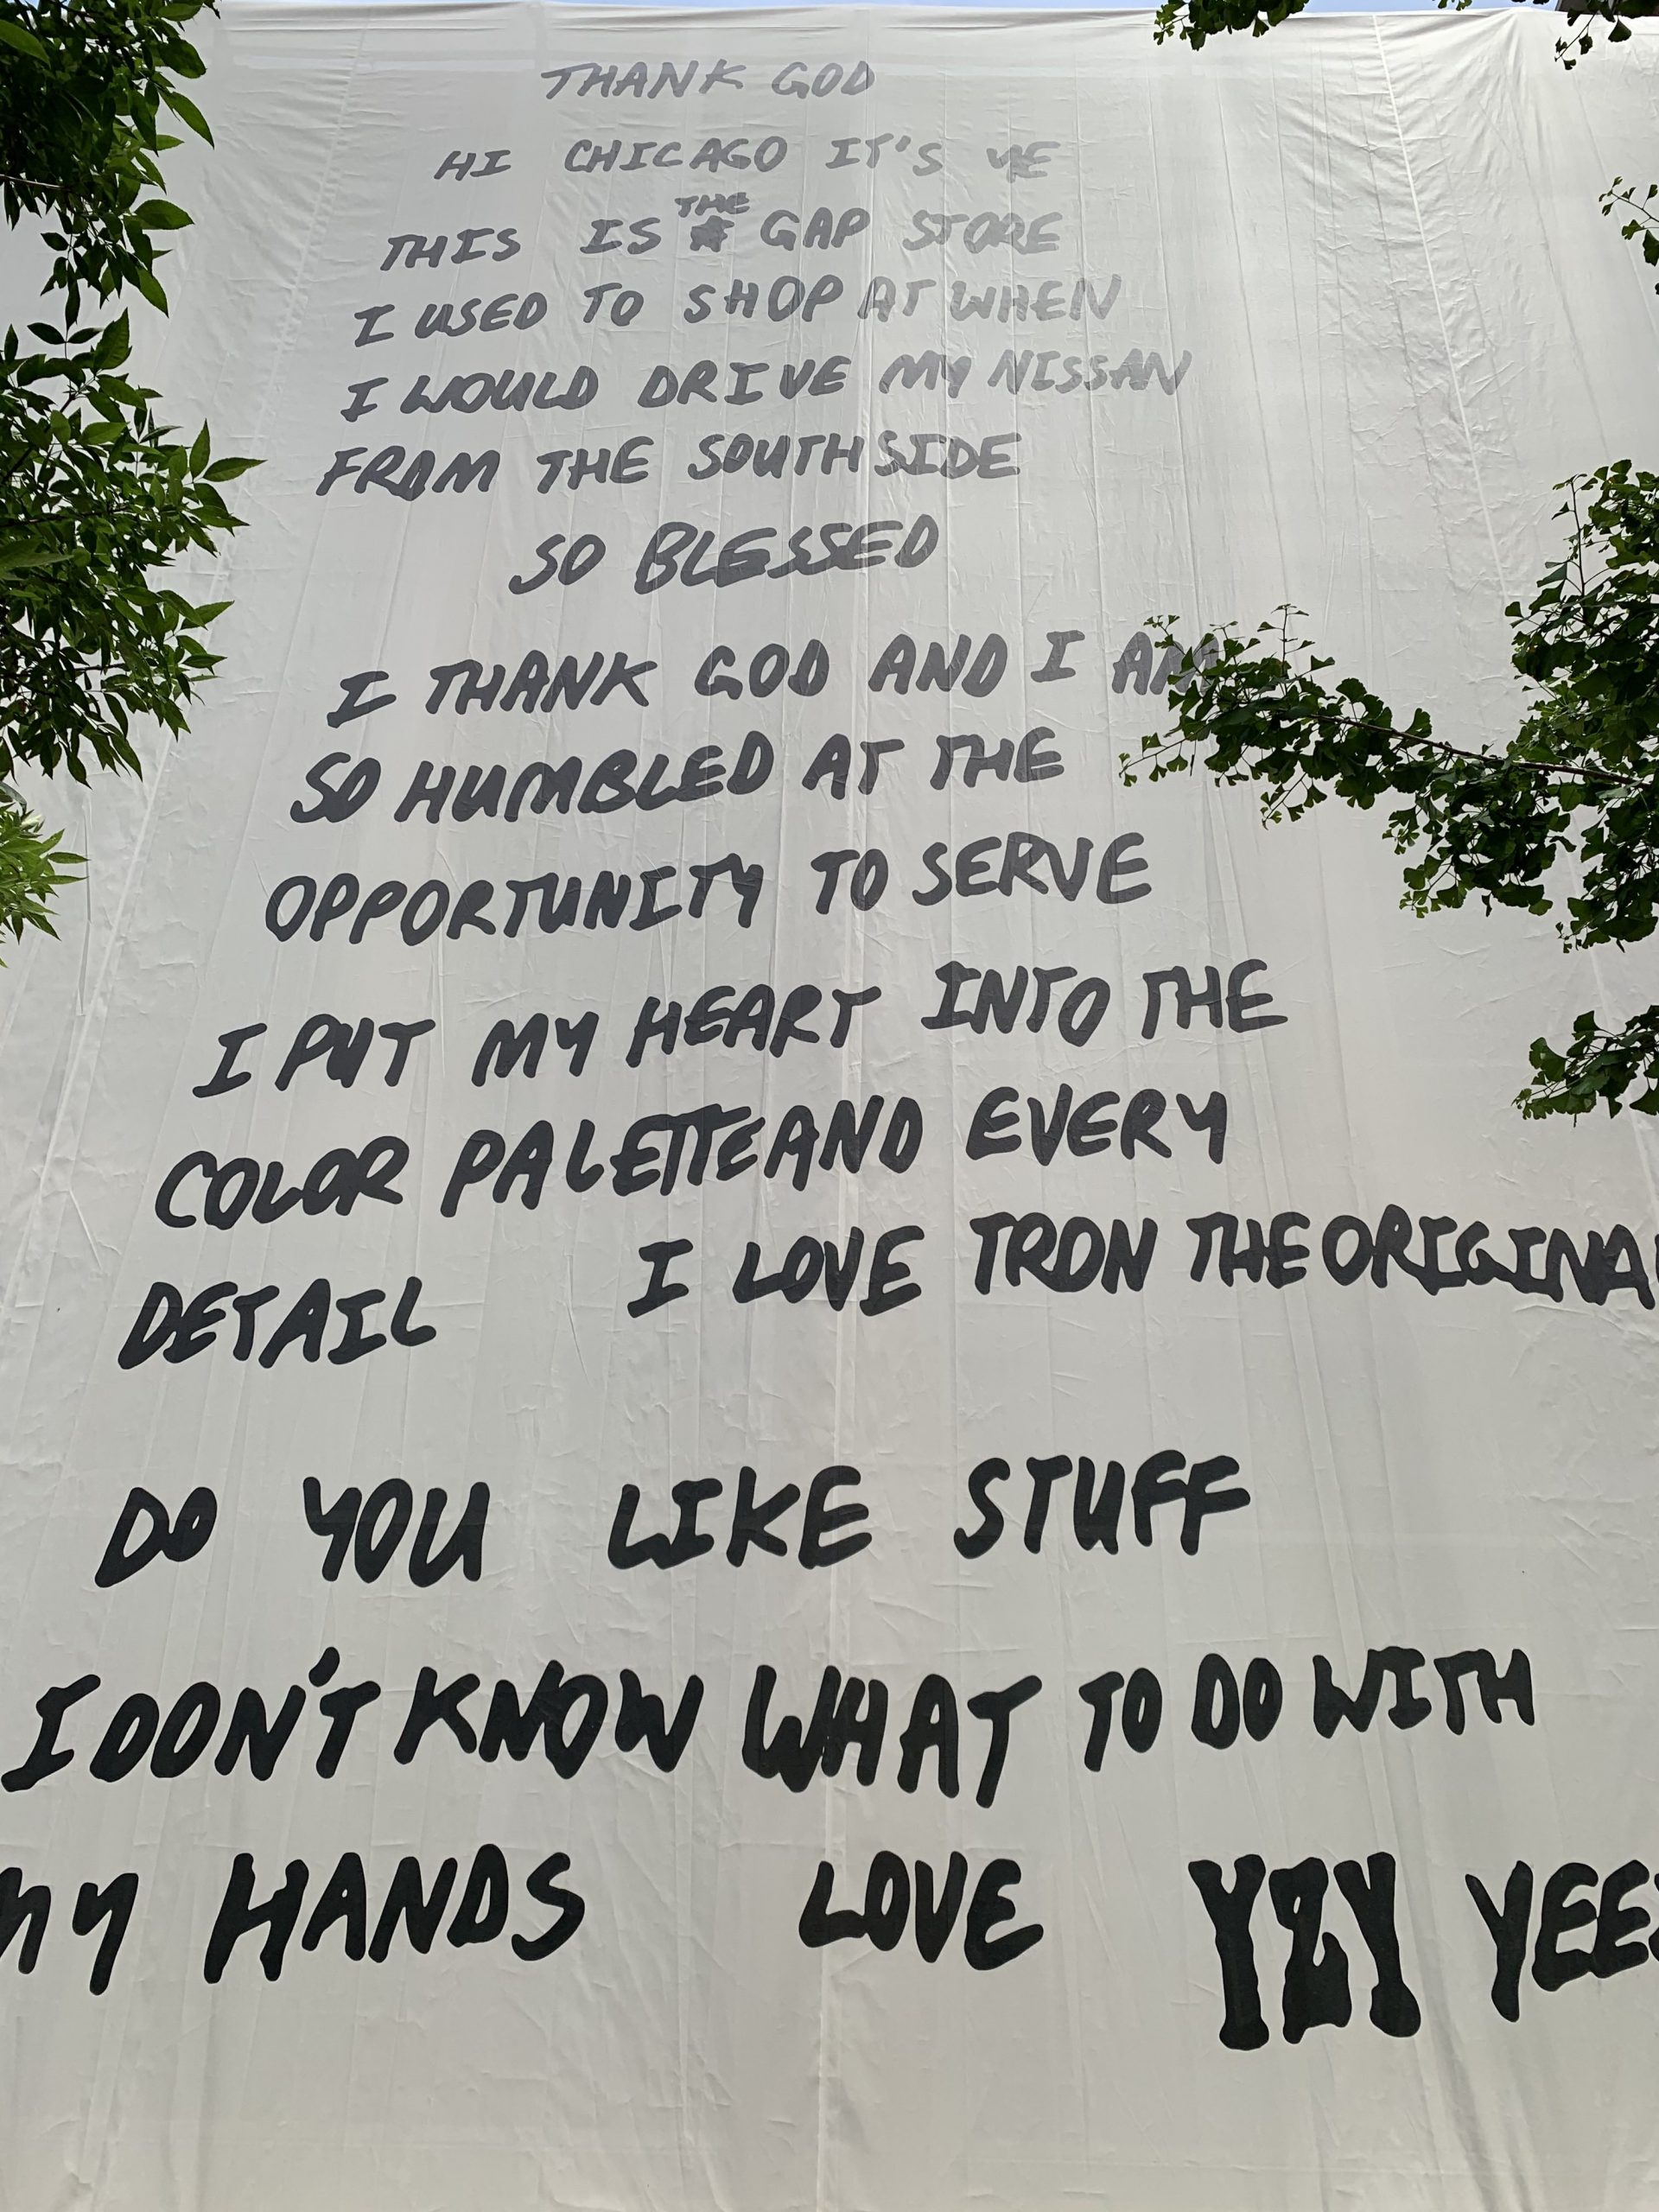 THANK GOD
HI CHICAGO IT'S YE
THIS IS THE GAP STORE
I USED TO SHOP AT WHEN
I WOULD DRIVE MY NISSAN
FROM THE SOUTHSIDE
SO BLESSED
I THANK GOD AND I AM
SO HUMBLED AT THE
OPPORTUNITY TO SERVE
I PUT MY HEART INTO THE
COLOR PALETTE AND EVERY
DETAIL I LOVE TRON THE ORIGINAL
DO YOU LIKE STUFF
I DON'T KNOW WHAT TO DO WITH
MY HANDS LOVE YZY YEE